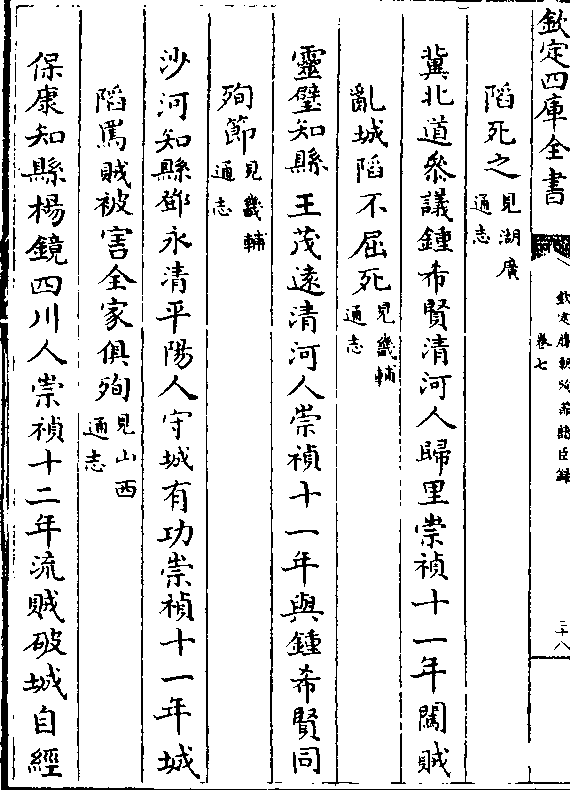 欽定四庫全書
欽定勝朝殉節諸臣錄
卷七
三十八
陷死之見湖廣通志
冀北道叅議鍾希賢清河人歸里崇禎十一年闖賊
亂城陷不屈死見畿輔通志
靈璧知縣王茂遠清河人崇禎十一年與鍾希賢同
殉節見畿輔通志
沙河知縣鄧永清平陽人守城有功崇禎十一年城
陷罵賊被害全家俱殉見山西通志
保康知縣楊鏡四川人崇禎十二年流賊破城自經